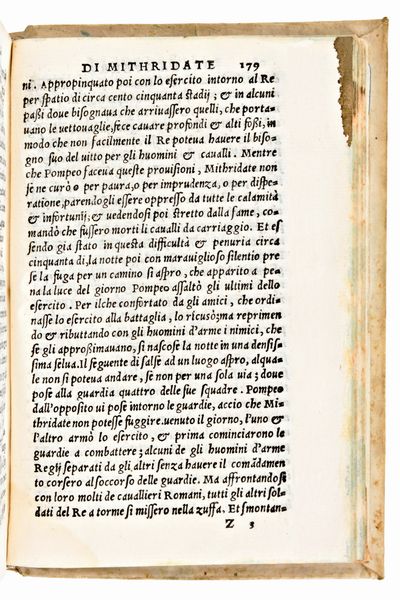 DI MITHRIDATE 179
ni. Appropinquato poi con lo esercito intorno al Re
per spatio di circa cento cinquanta stadij; & in alcuni
paßi doue bisognaua che arriuassero quelli, che porta-
uano le vettouaglie, fece cauare profondi & alti foßi, in
modo che non facilmente il Re poteua hauere il biso-
gno suo del uitto per gli huomini & caualli. Mentre
che Pompeo faceua queste prouisioni, Mithridate non
se ne curò o per paura, o per imprudenza, o per dispe-
ratione, parendogli essere oppresso da tutte le calamità
& infortunij; & uedendosi poi stretto dalla fame, co-
mandò che fussero morti li caualli da carriaggio. Et es-
sendo gia stato in questa difficultà & penuria circa
cinquanta dì, la notte poi con marauiglioso silentio pre
se la fuga per un camino sì aspro, che apparito a pe-
na la luce del giorno Pompeo assaltò gli ultimi dello
esercito. Per ilche confortato da gli amici, che ordi-
nasse lo esercito alla battaglia, lo ricusò; ma reprimen
do & ributtando con gli huomini d'arme i nimici, che
se gli approßimauano, si nascose la notte in una densis-
sima selua. Il seguente dì salse ad un luogo aspro, al qua-
le non si poteua andare, se non per una sola uia; doue
pose alla guardia quattro delle sue squadre. Pompeo
dall'opposito ui pose intorno le guardie, accio che Mi-
thridate non potesse fuggire. uenuto il giorno, l'uno &
l'altro armò lo esercito, & prima cominciarono le
guardie a combattere; alcuni de gli huomini d'arme
Regij separati da gli altri senza hauere il comãdamen
to corsero al soccorso delle guardie. Ma affrontandosi
con loro molti de cauallieri Romani, tutti gli altri sol-
dati del Re a torme si missero nella zuffa. Et smontan-
Z 3